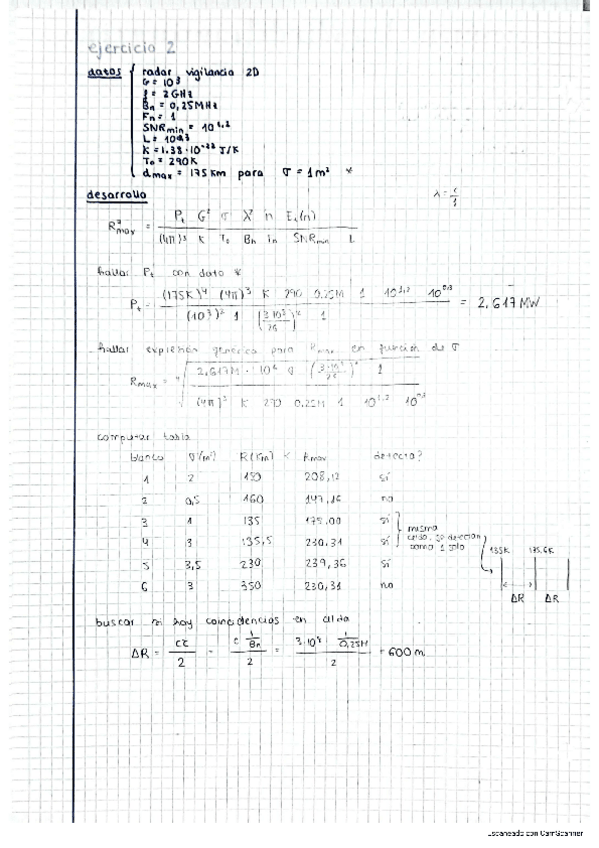 ejercicio 2
datos radar vigilancia 2D
G = 10³
f = 2GHz
Bn = 0,25MHz
Fn = 1
SNRmin = 10^1,2
L = 10^0,3
K = 1.38·10^-23 J/K
To = 290K
dmax = 175 Km para σ = 1m² *
desarrollo
λ = c/f
Rmax⁴ = Pt G² σ λ² n Ei(n) / (4π)³ K To Bn Fn SNRmin L
hallar Pt con dato *
Pt = (175K)⁴ (4π)³ K 290 0.25M 1 10^1,2 10^0,3 / (10³)² 1 (3·10⁸/2G)² 1 = 2,617 MW
hallar expresión genérica para Rmax en función de σ
Rmax = ⁴√ 2,617M · 10⁶ σ (3·10⁸/2G)² 1 / (4π)³ K 290 0.25M 1 10^1,2 10^0,3
computar tabla
blanco σ(m²) R(Km) < Rmax detecta?
1 2 190 208,12 sí
2 0,5 160 147,16 no
3 1 135 175,00 sí
4 3 135,5 230,31 sí
5 3,5 230 239,36 sí
6 3 350 230,31 no
misma
celda, se detectan
como 1 solo
135K 135,6K
ΔR ΔR
buscar si hay coincidencias en celda
ΔR = cτ/2 = c 1/Bn / 2 = 3·10⁸ 1/0,25M / 2 = 600 m
Escaneado con CamScanner